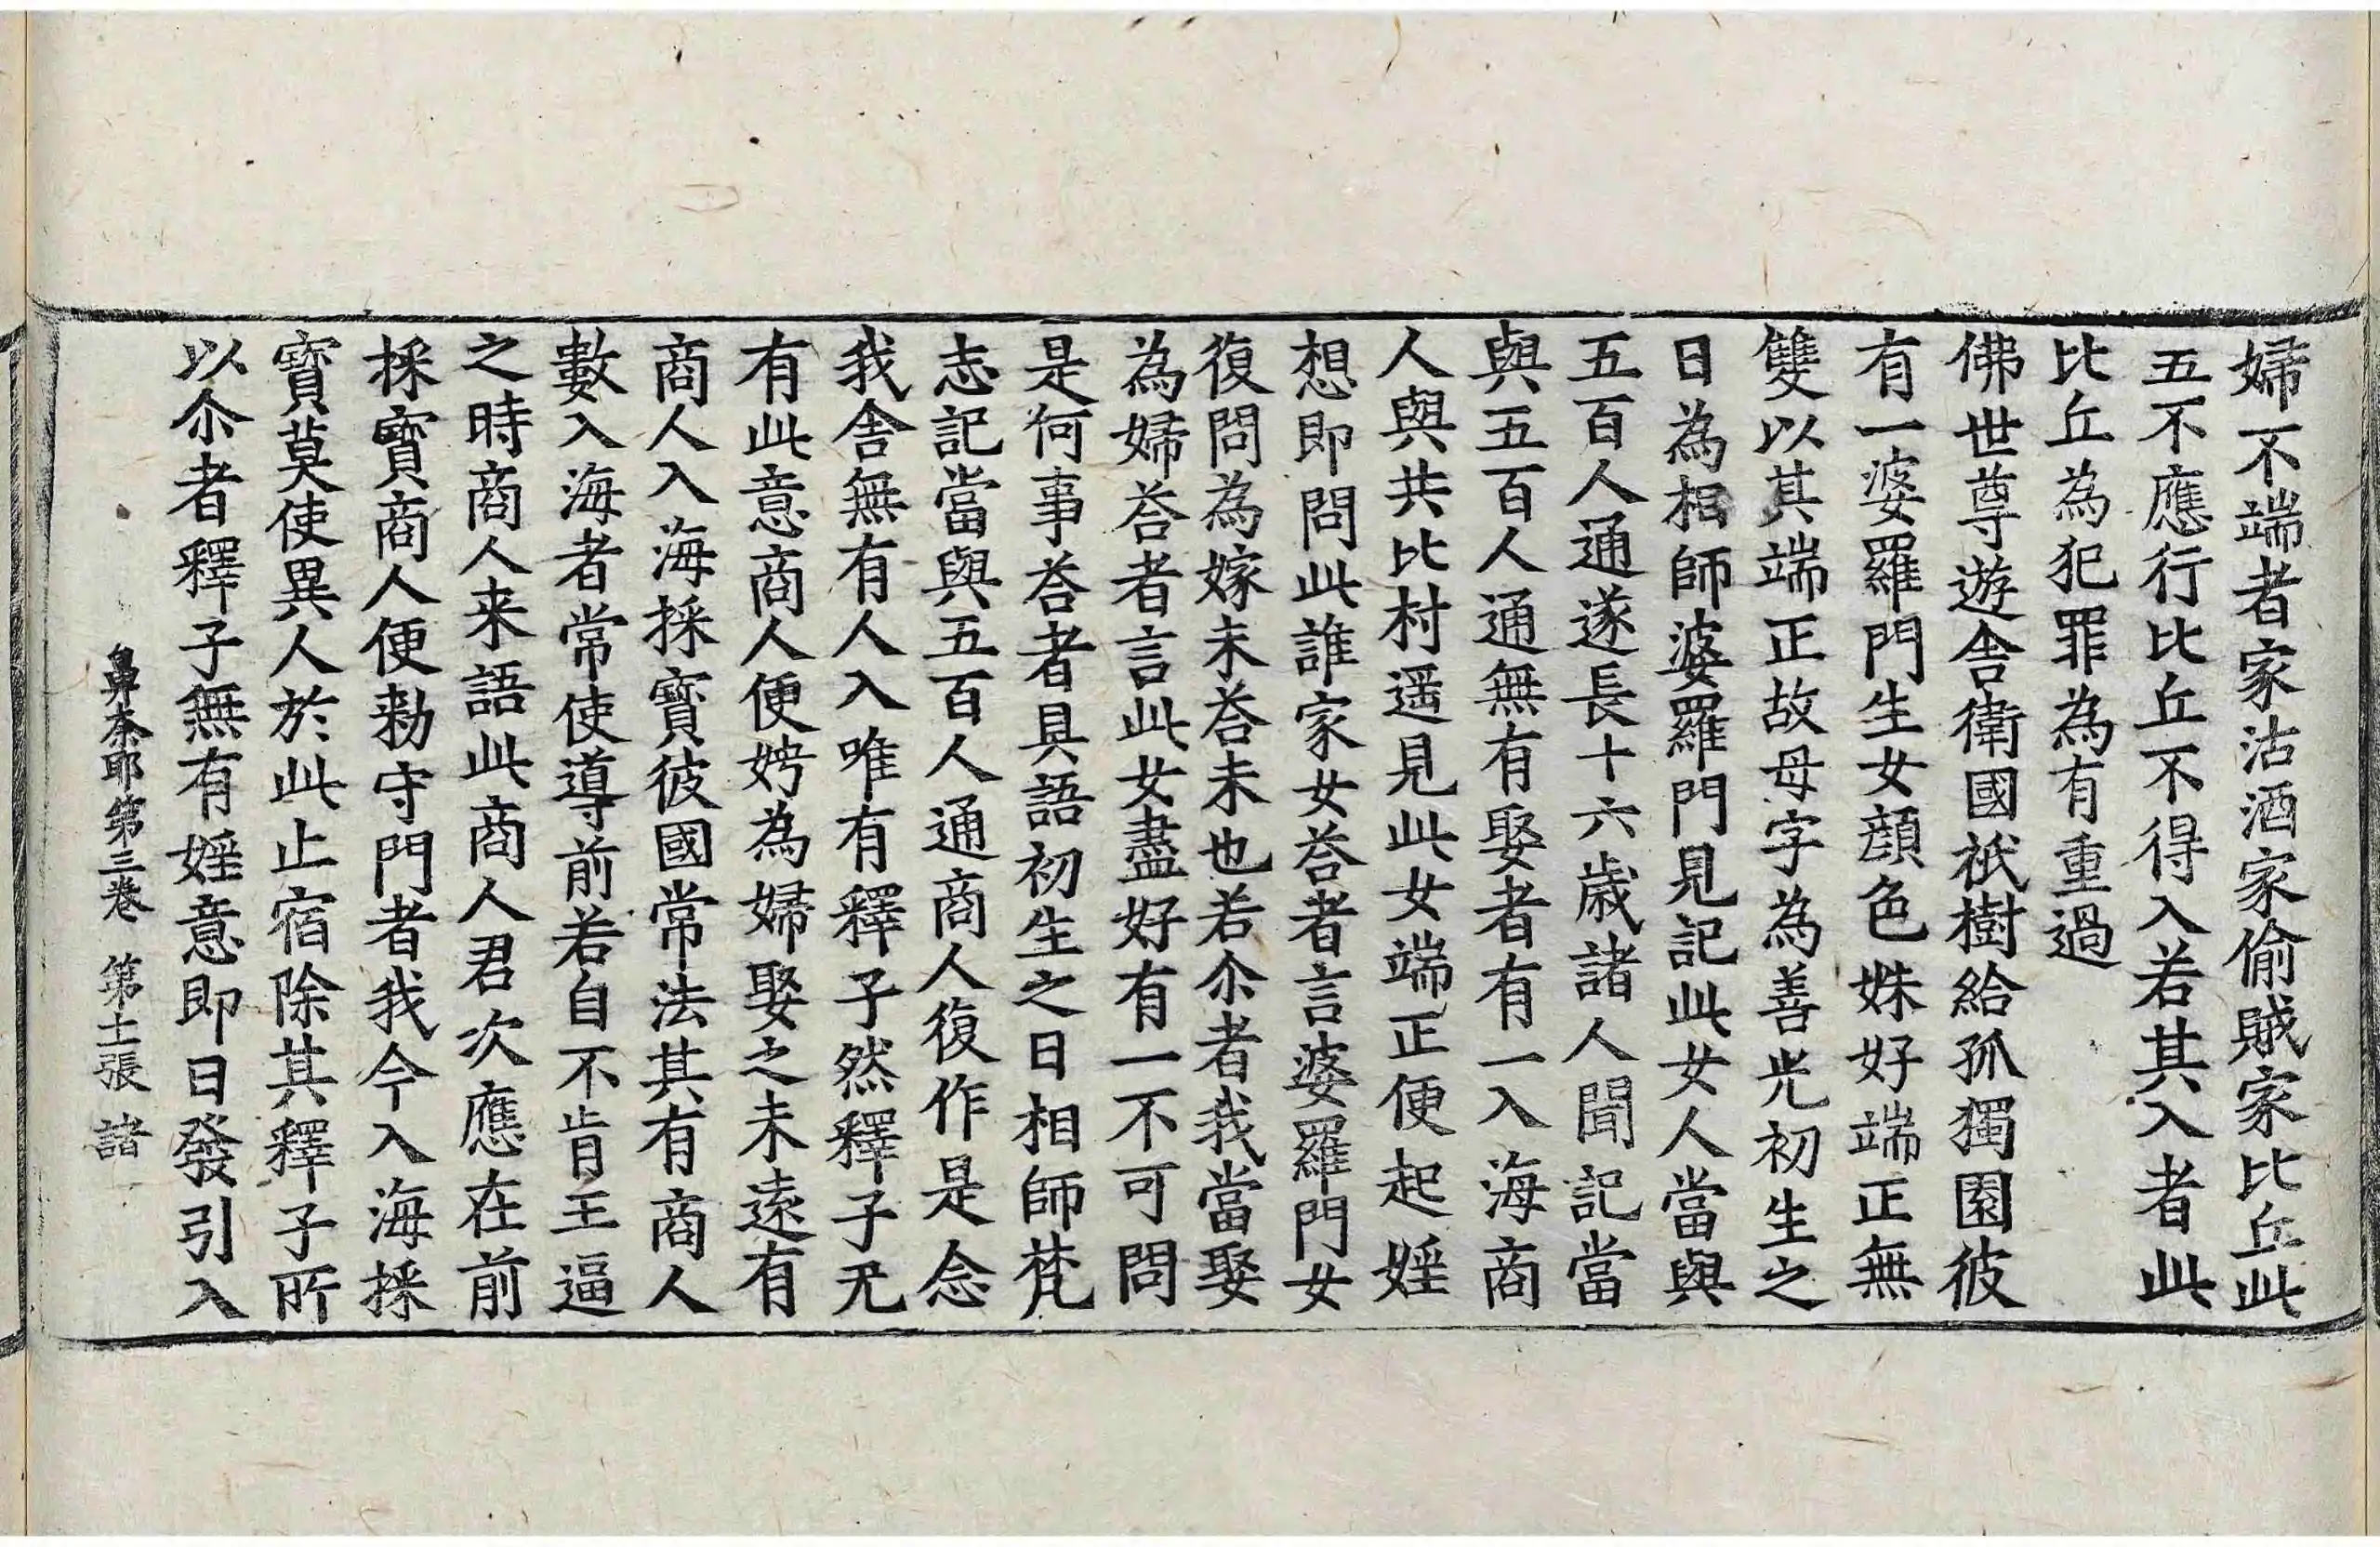 婦不端者家沽酒家偷賊家比丘此
五不應行比丘不得入若其入者此
比丘為犯罪為有重過
佛世尊遊舍衛國祇樹給孤獨園彼
有一婆羅門生女顔色姝好端正無
雙以其端正故母字為善光初生之
日為相師婆羅門見記此女人當與
五百人通遂長十六歲諸人聞記當
與五百人通無有娶者有一入海商
人與共比村遥見此女端正便起婬
想即問此誰家女荅者言婆羅門女
復問為嫁未荅未也若尒者我當娶
為婦荅者言此女盡好有一不可問
是何事荅者具語初生之日相師梵
志記當與五百人通商人復作是念
我舍無有人入唯有釋子然釋子无
有此意商人便娉為婦娶之未遠有
商人入海採寶彼國常法其有商人
數入海者常使導前若自不肯王逼
之時商人来語此商人君次應在前
採寶商人便勑守門者我今入海採
寶莫使異人於此止宿除其釋子所
以尒者釋子無有婬意即日發引入
鼻柰耶第三卷 第十一張 諸